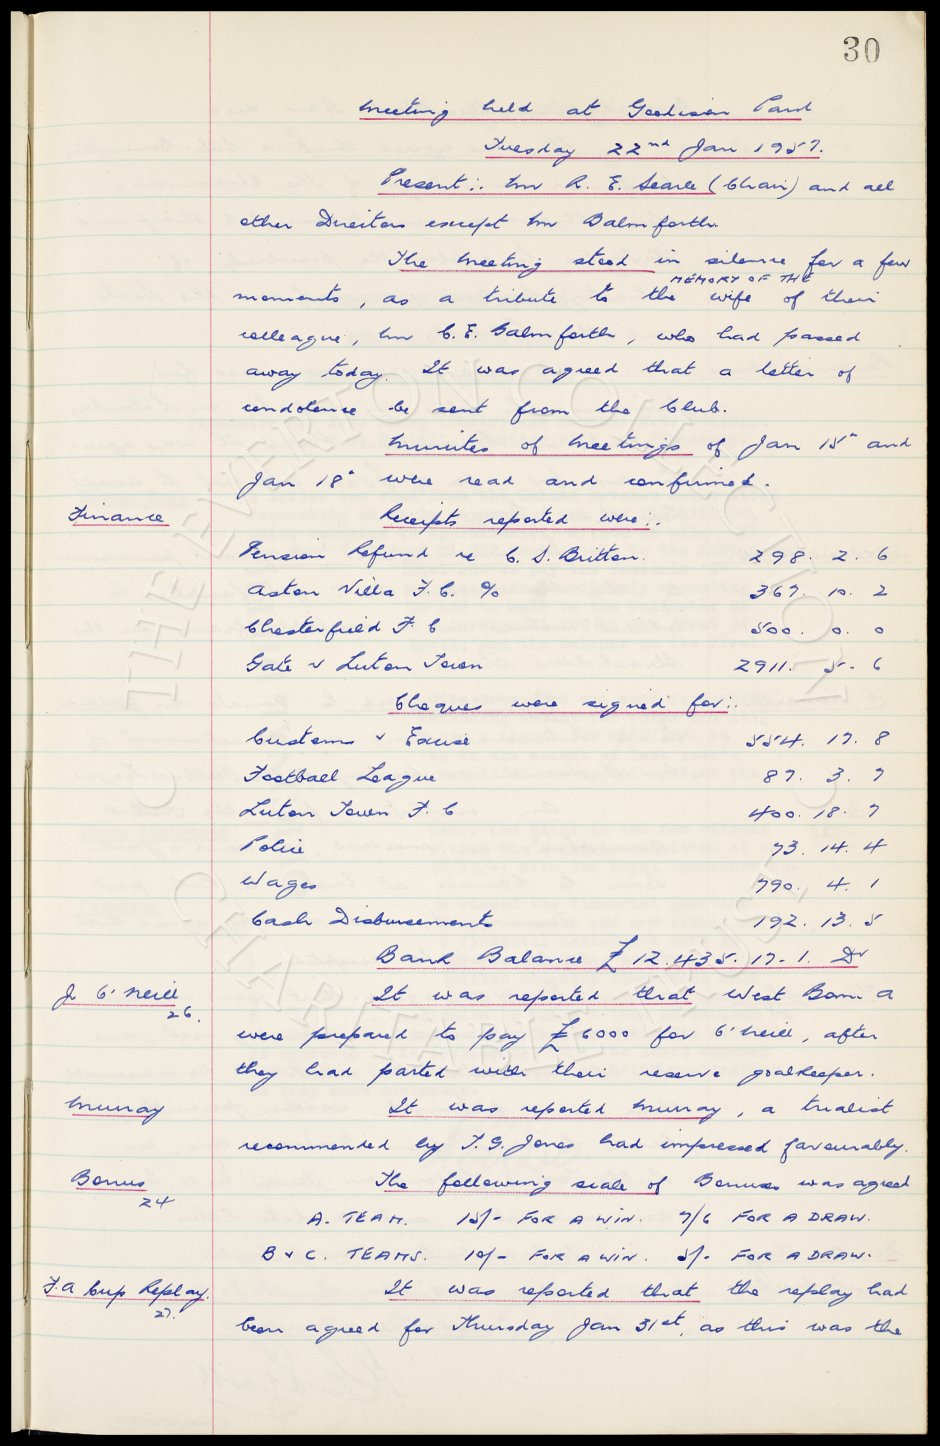 30
Meeting held at Goodison Park
Tuesday 22nd Jan 1957.
Present:. Mr R. E. Searle (Chair) and all
other Directors except Mr Balmforth.
The Meeting stood in silence for a few
MEMORY OF THE
moments, as a tribute to the wife of their
colleague, Mr C. E. Balmforth, who had passed
away today. It was agreed that a letter of
condolence be sent from the Club.
Minutes of Meetings of Jan 15" and
Jan 18" were read and confirmed.
Finance Receipts reported were:.
Pension Refund re C. S. Britton. 298. 2. 6
Aston Villa F. C. % 367. 10. 2
Chesterfield F. C 500. 0. 0
Gate v Luton Town 2911. 5. 6
Cheques were signed for:.
Customs & Excise 554. 17. 8
Football League 87. 3. 7
Luton Town F. C 400. 18. 7
Police 73. 14. 4
Wages 790. 4. 1
Cash Disbursements 192. 13. 5
Bank Balance £12.435. 17. 1. Dr
J O'Neill It was reported that West Brom A
26.
were prepared to pay £6000 for O'Neill, after
they had parted with their reserve goalkeeper.
Murray It was reported Murray, a trialist
recommended by T. G. Jones had impressed favourably.
Bonus The following scale of Bonuses was agreed
24
A. TEAM. 15/- FOR A WIN. 7/6 FOR A DRAW.
B & C. TEAMS. 10/- FOR A WIN. 5/- FOR A DRAW.
F.A Cup Replay. It was reported that the replay had
27.
been agreed for Thursday Jan 31st, as this was the
THE EVERTON COLLECTION
CHARITABLE TRUST